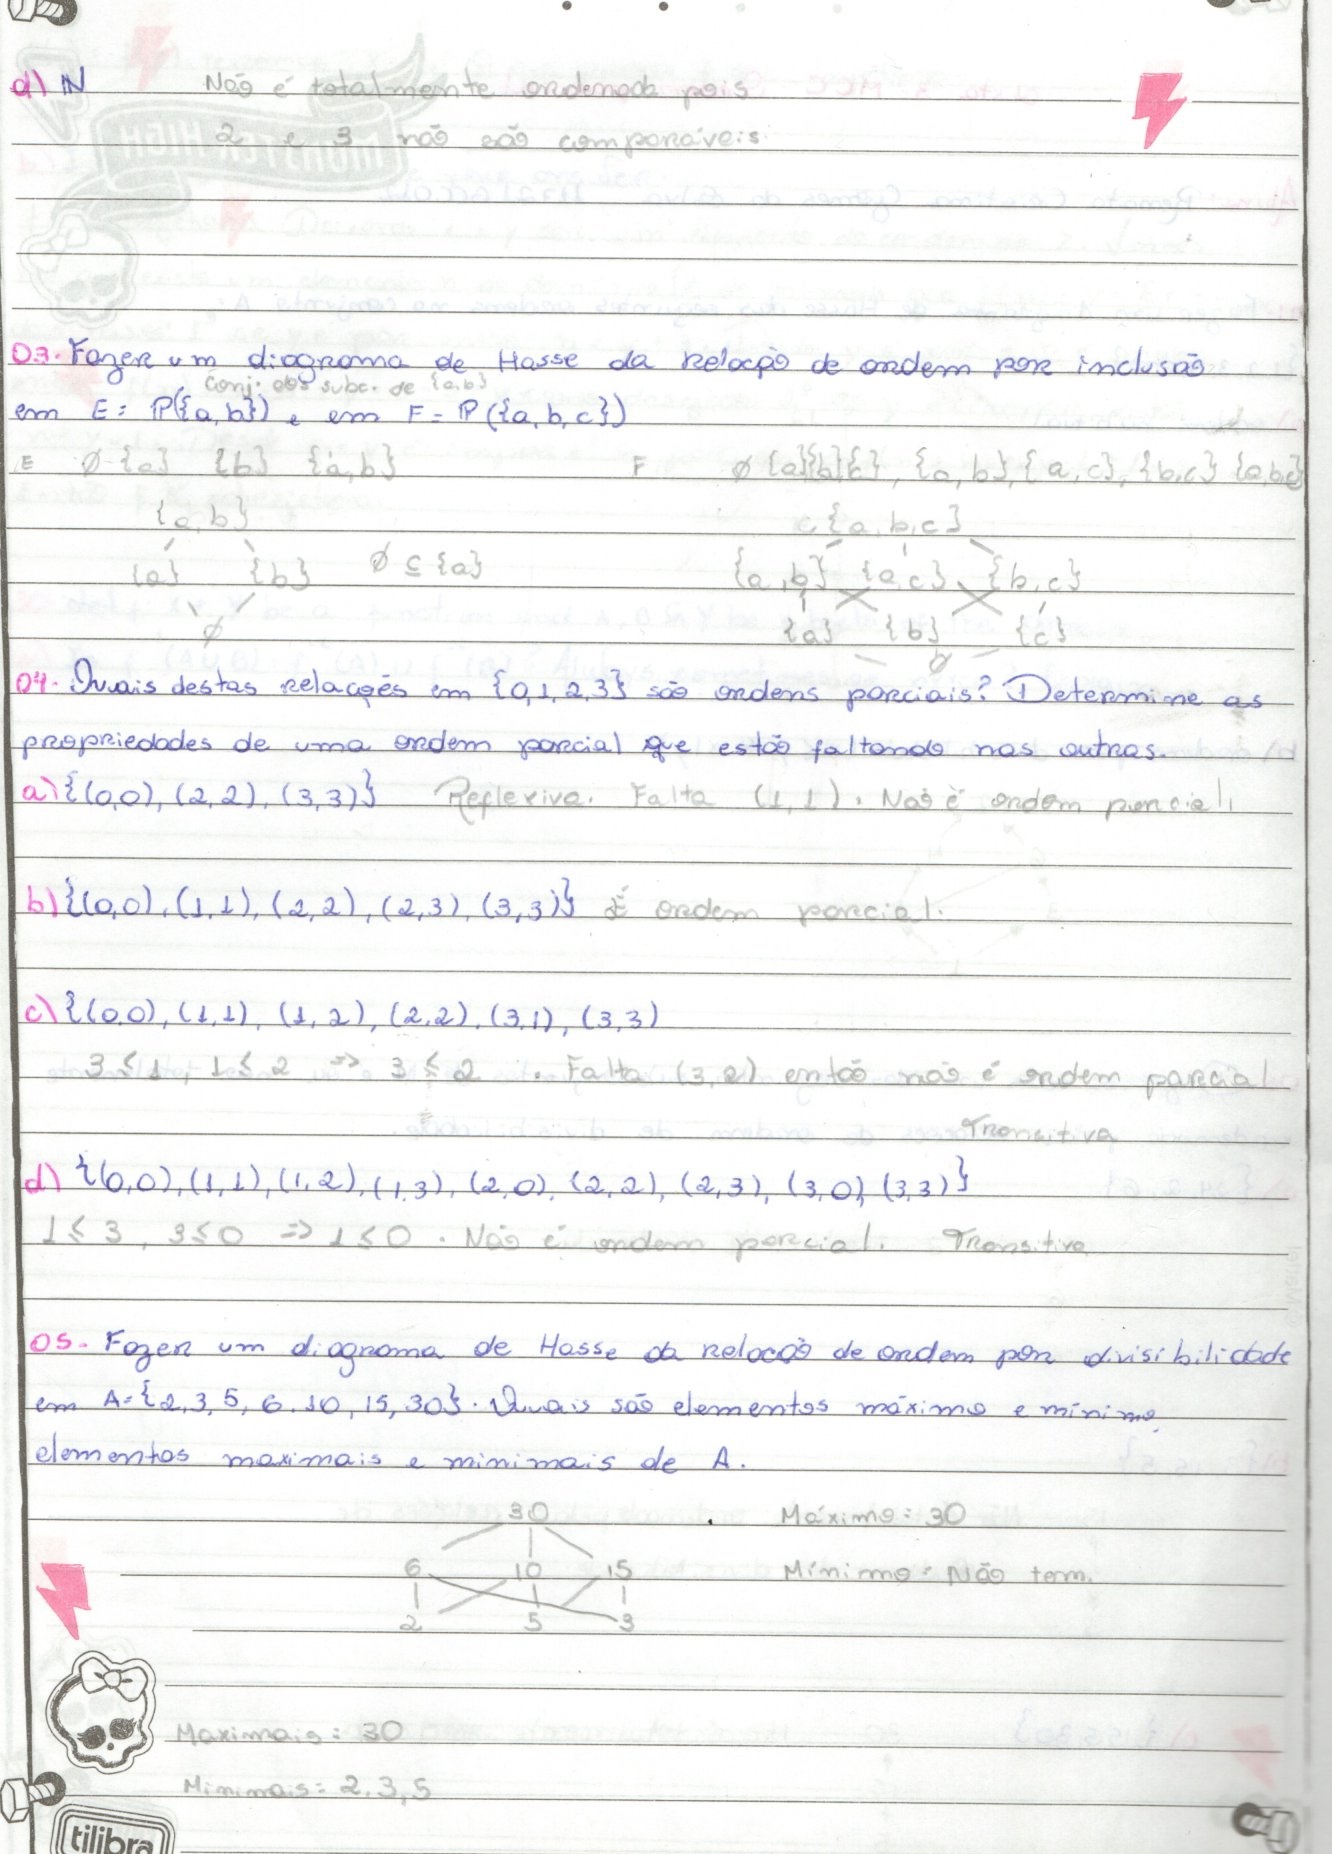 d) ℕ Não é totalmente ordenada pois
2 e 3 não são comparáveis.
03. Fazer um diagrama de Hasse da relação de ordem por inclusão
conj. dos subc. de {a,b}
em E = P({a,b}) e em F = P({a,b,c})
E ∅ {a} {b} {a,b} F ∅ {a}{b}{c}, {a,b},{a,c},{b,c} {a,b,c}
{a,b} {a,b,c}
{a} {b} ∅ ⊆ {a} {a,b} {a,c} {b,c}
∅ {a} {b} {c}
∅
04. Quais destas relações em {0,1,2,3} são ordens parciais? Determine as
propriedades de uma ordem parcial que estão faltando nas outras.
a) {(0,0), (2,2), (3,3)} Reflexiva. Falta (1,1). Não é ordem parcial.
b) {(0,0), (1,1), (2,2), (2,3), (3,3)} É ordem parcial.
c) {(0,0), (1,1), (1,2), (2,2), (3,1), (3,3)
3 ≤ 1, 1 ≤ 2 => 3 ≤ 2. Falta (3,2) então não é ordem parcial
Transitiva
d) {(0,0), (1,1), (1,2), (1,3), (2,0), (2,2), (2,3), (3,0), (3,3)}
1 ≤ 3, 3 ≤ 0 => 1 ≤ 0. Não é ordem parcial. Transitiva
05. Fazer um diagrama de Hasse da relação de ordem por divisibilidade
em A = {2,3,5,6,10,15,30}. Quais são elementos máximo e mínimo,
elementos maximais e minimais de A.
30 Máximo: 30
6 10 15 Mínimo: Não tem.
2 5 3
Maximais: 30
Minimais: 2,3,5
tilibra